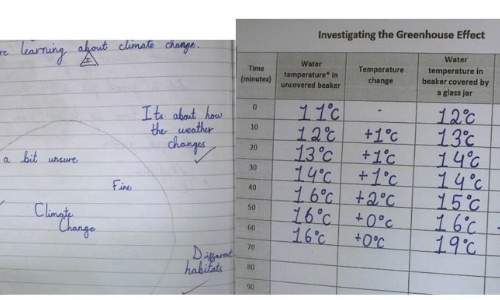 re learning about climate change.
Its about how
the weather
changes
a bit unsure
Fine
Climate
Change
Different
habitats
Investigating the Greenhouse Effect
Time (minutes) Water temperature* in uncovered beaker Temperature change Water temperature in beaker covered by a glass jar
0 11°c - 12°c
10 12°c +1°c 13°c
20 13°c +1°c 14°c
30 14°c +1°c 14°c
40 16°c +2°c 15°c
50 16°c +0°c 16°c
60 16°c +0°c 19°c
70
80
90